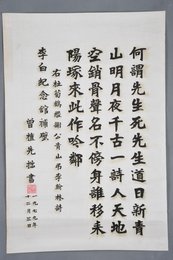 何謂先生死先生道日新青
山明月夜千古一詩人天地
空銷骨聲名不傍身誰移耒
陽塚來此作吟鄰
右杜荀鶴經謝公青山弔李翰林詩
李白紀念館補壁
先拙書
一九七九年
十二月